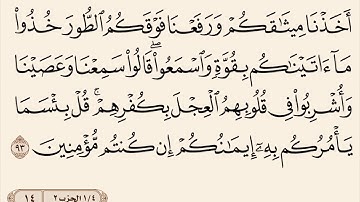 أَخَذْنَا مِيثَٰقَكُمْ وَرَفَعْنَا فَوْقَكُمُ ٱلطُّورَ خُذُوا۟
مَآ ءَاتَيْنَٰكُم بِقُوَّةٍ وَٱسْمَعُوا۟ ۖ قَالُوا۟ سَمِعْنَا وَعَصَيْنَا
وَأُشْرِبُوا۟ فِى قُلُوبِهِمُ ٱلْعِجْلَ بِكُفْرِهِمْ ۚ قُلْ بِئْسَمَا
يَأْمُرُكُم بِهِۦٓ إِيمَٰنُكُمْ إِن كُنتُم مُّؤْمِنِينَ ٩٣
١/٤ الحزب ٢ ١٤